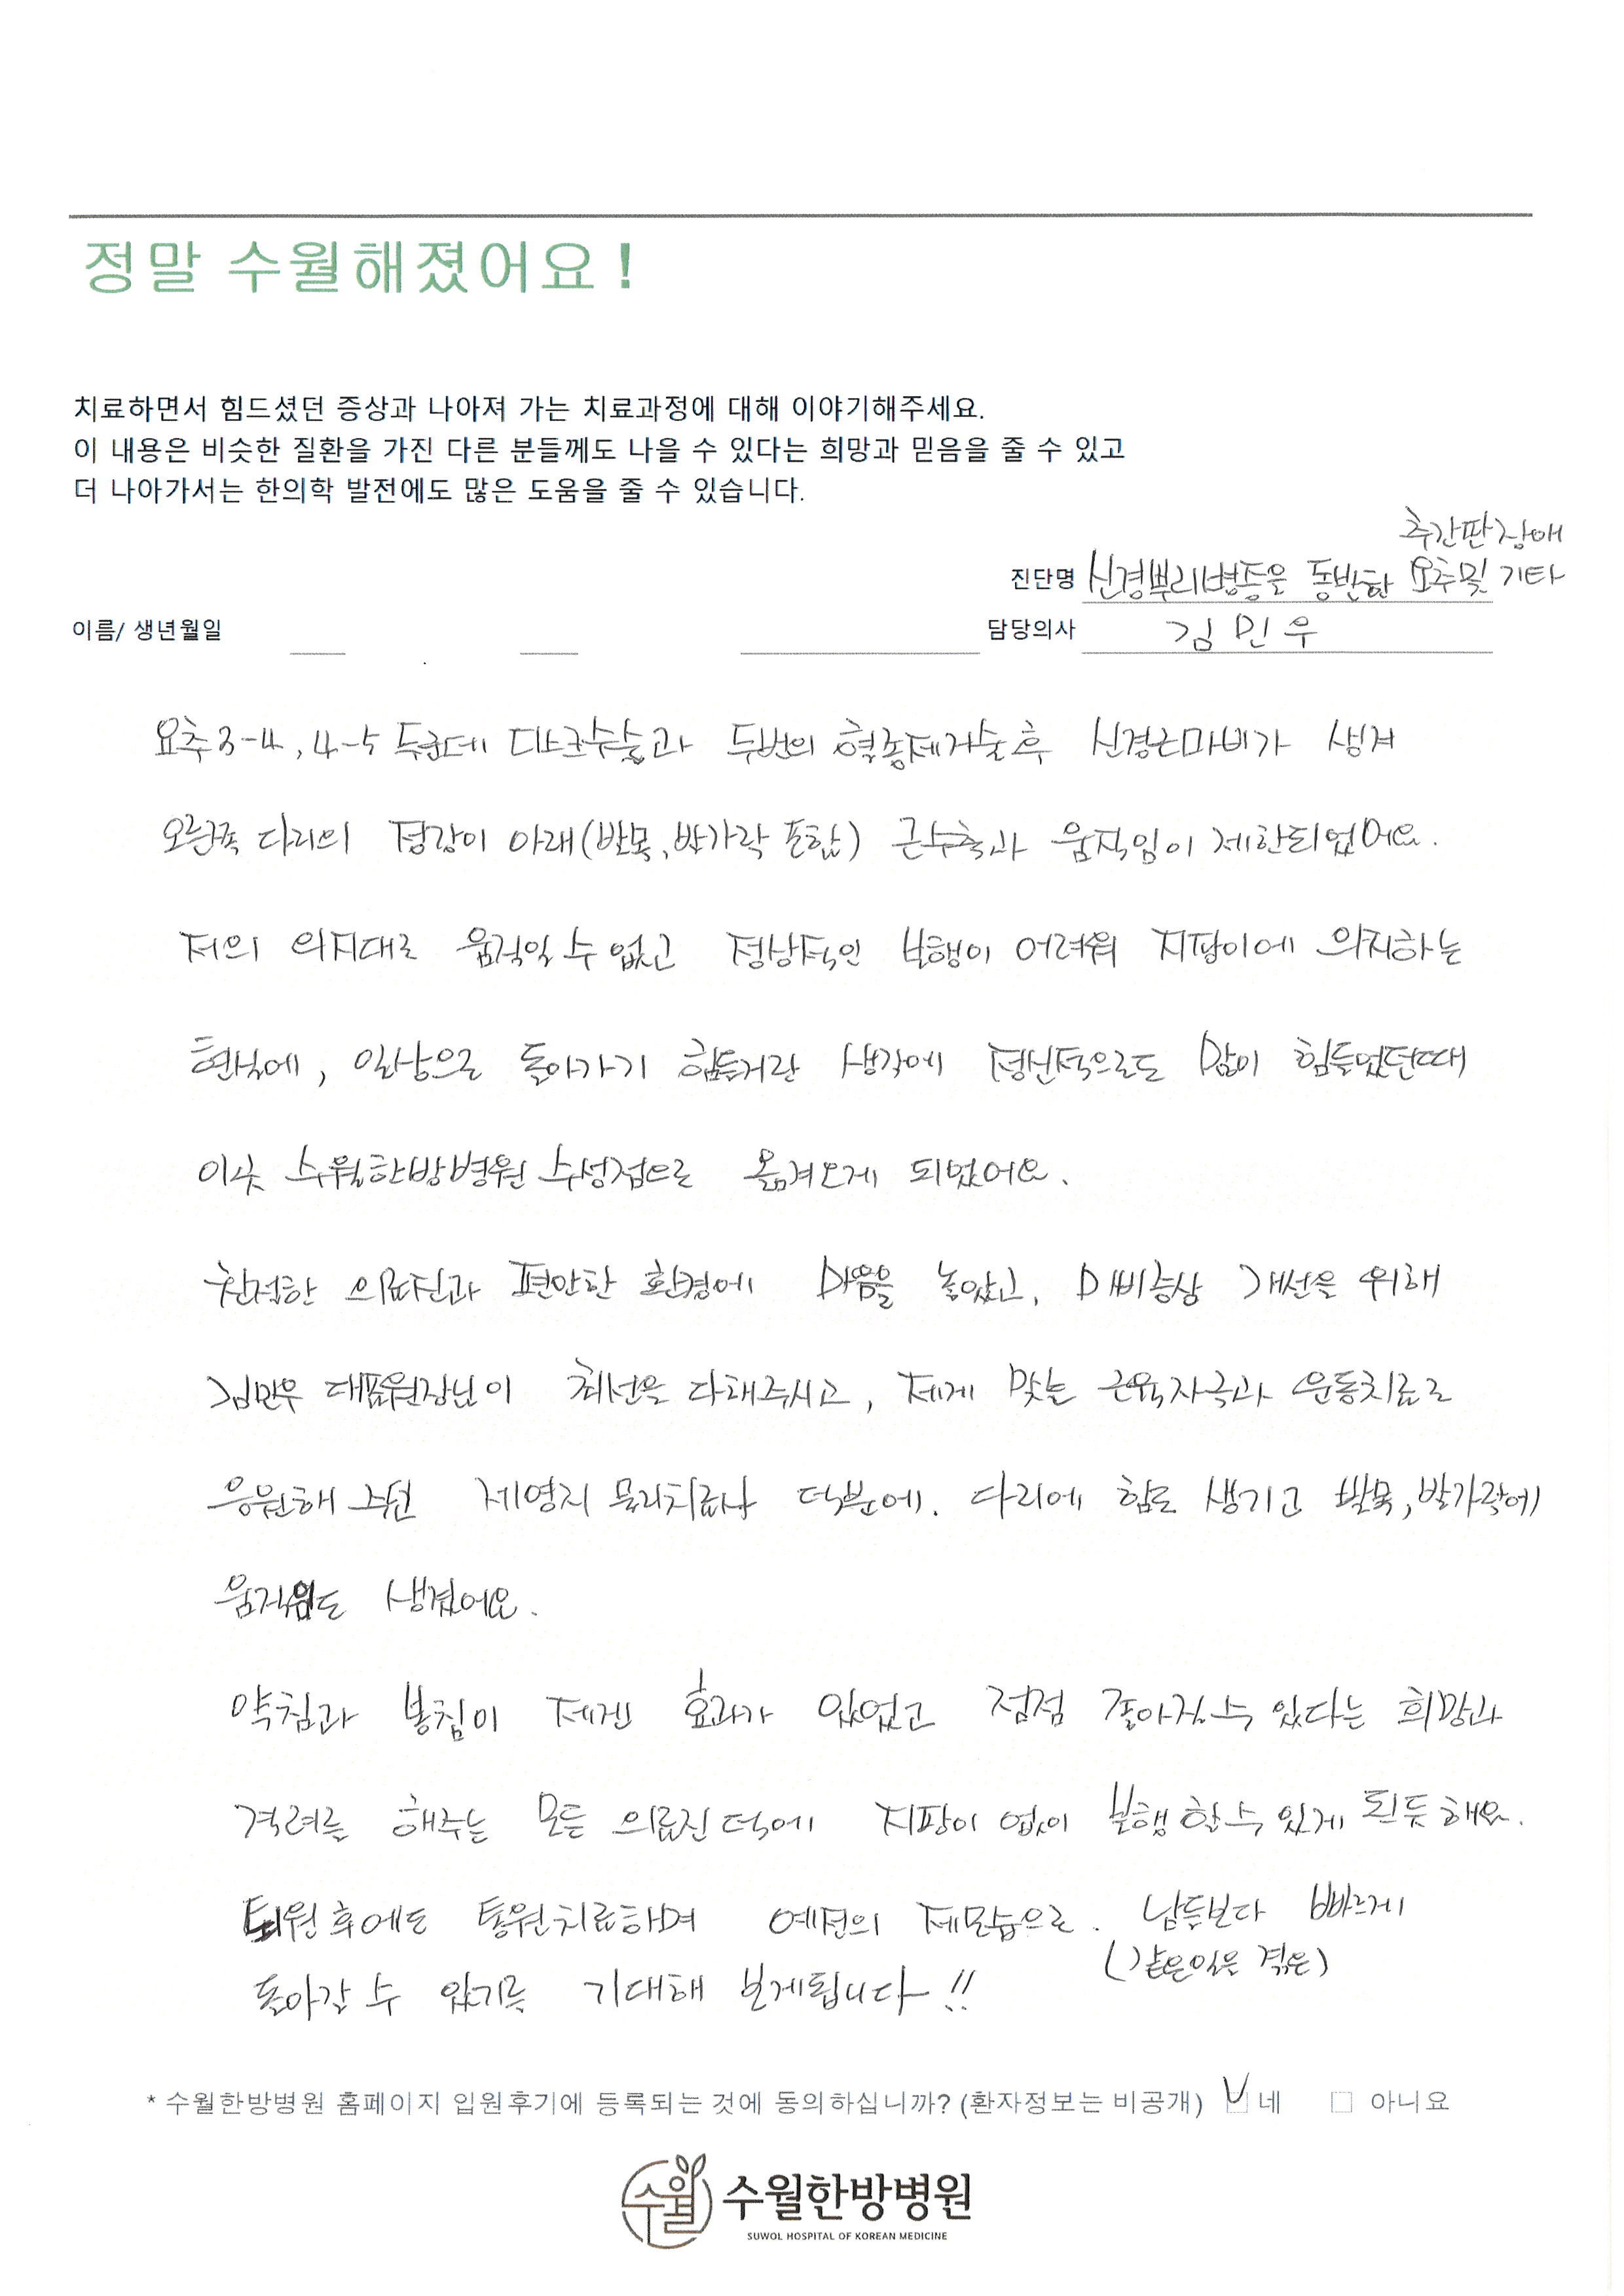 정말 수월해졌어요!
치료하면서 힘드셨던 증상과 나아져 가는 치료과정에 대해 이야기해주세요.
이 내용은 비슷한 질환을 가진 다른 분들께도 나을 수 있다는 희망과 믿음을 줄 수 있고
더 나아가서는 한의학 발전에도 많은 도움을 줄 수 있습니다.
추간판장애
진단명 신경뿌리병증을 동반한 요추및 기타
이름/ 생년월일 담당의사 김민우
요추3-4, 4-5 두군데 디스크수술과 두번의 혈종제거술 후 신경근마비가 생겨
오른쪽 다리의 정강이 아래(발목, 발가락 포함) 근수축과 움직임이 제한되었어요.
저의 의지대로 움직일 수 없고 정상적인 보행이 어려워 지팡이에 의지하는
현실에, 일상으로 돌아가기 힘들거란 생각에 정신적으로도 많이 힘들었던때
이곳 수월한방병원 수성점으로 옮겨오게 되었어요.
친절한 의료진과 편안한 환경에 마음을 놓았고, 마비증상 개선을 위해
김민우 대표원장님이 최선을 다해주시고, 제게 맞는 근육자극과 운동치료로
응원해 주던 제영지 물리치료사 덕분에. 다리에 힘도 생기고 발목, 발가락에
움직임도 생겼어요.
약침과 봉침이 제겐 효과가 있었고 점점 좋아질수 있다는 희망과
격려를 해주는 모든 의료진 덕에 지팡이 없이 보행 할수 있게 된듯 해요.
퇴원 후에도 통원치료하며 예전의 제모습으로. 남들보다 빠르게
(같은일은 겪은)
돌아갈 수 있기를 기대해 보게됩니다!!
* 수월한방병원 홈페이지 입원후기에 등록되는 것에 동의하십니까? (환자정보는 비공개) 네 아니요
수월 수월한방병원
SUWOL HOSPITAL OF KOREAN MEDICINE